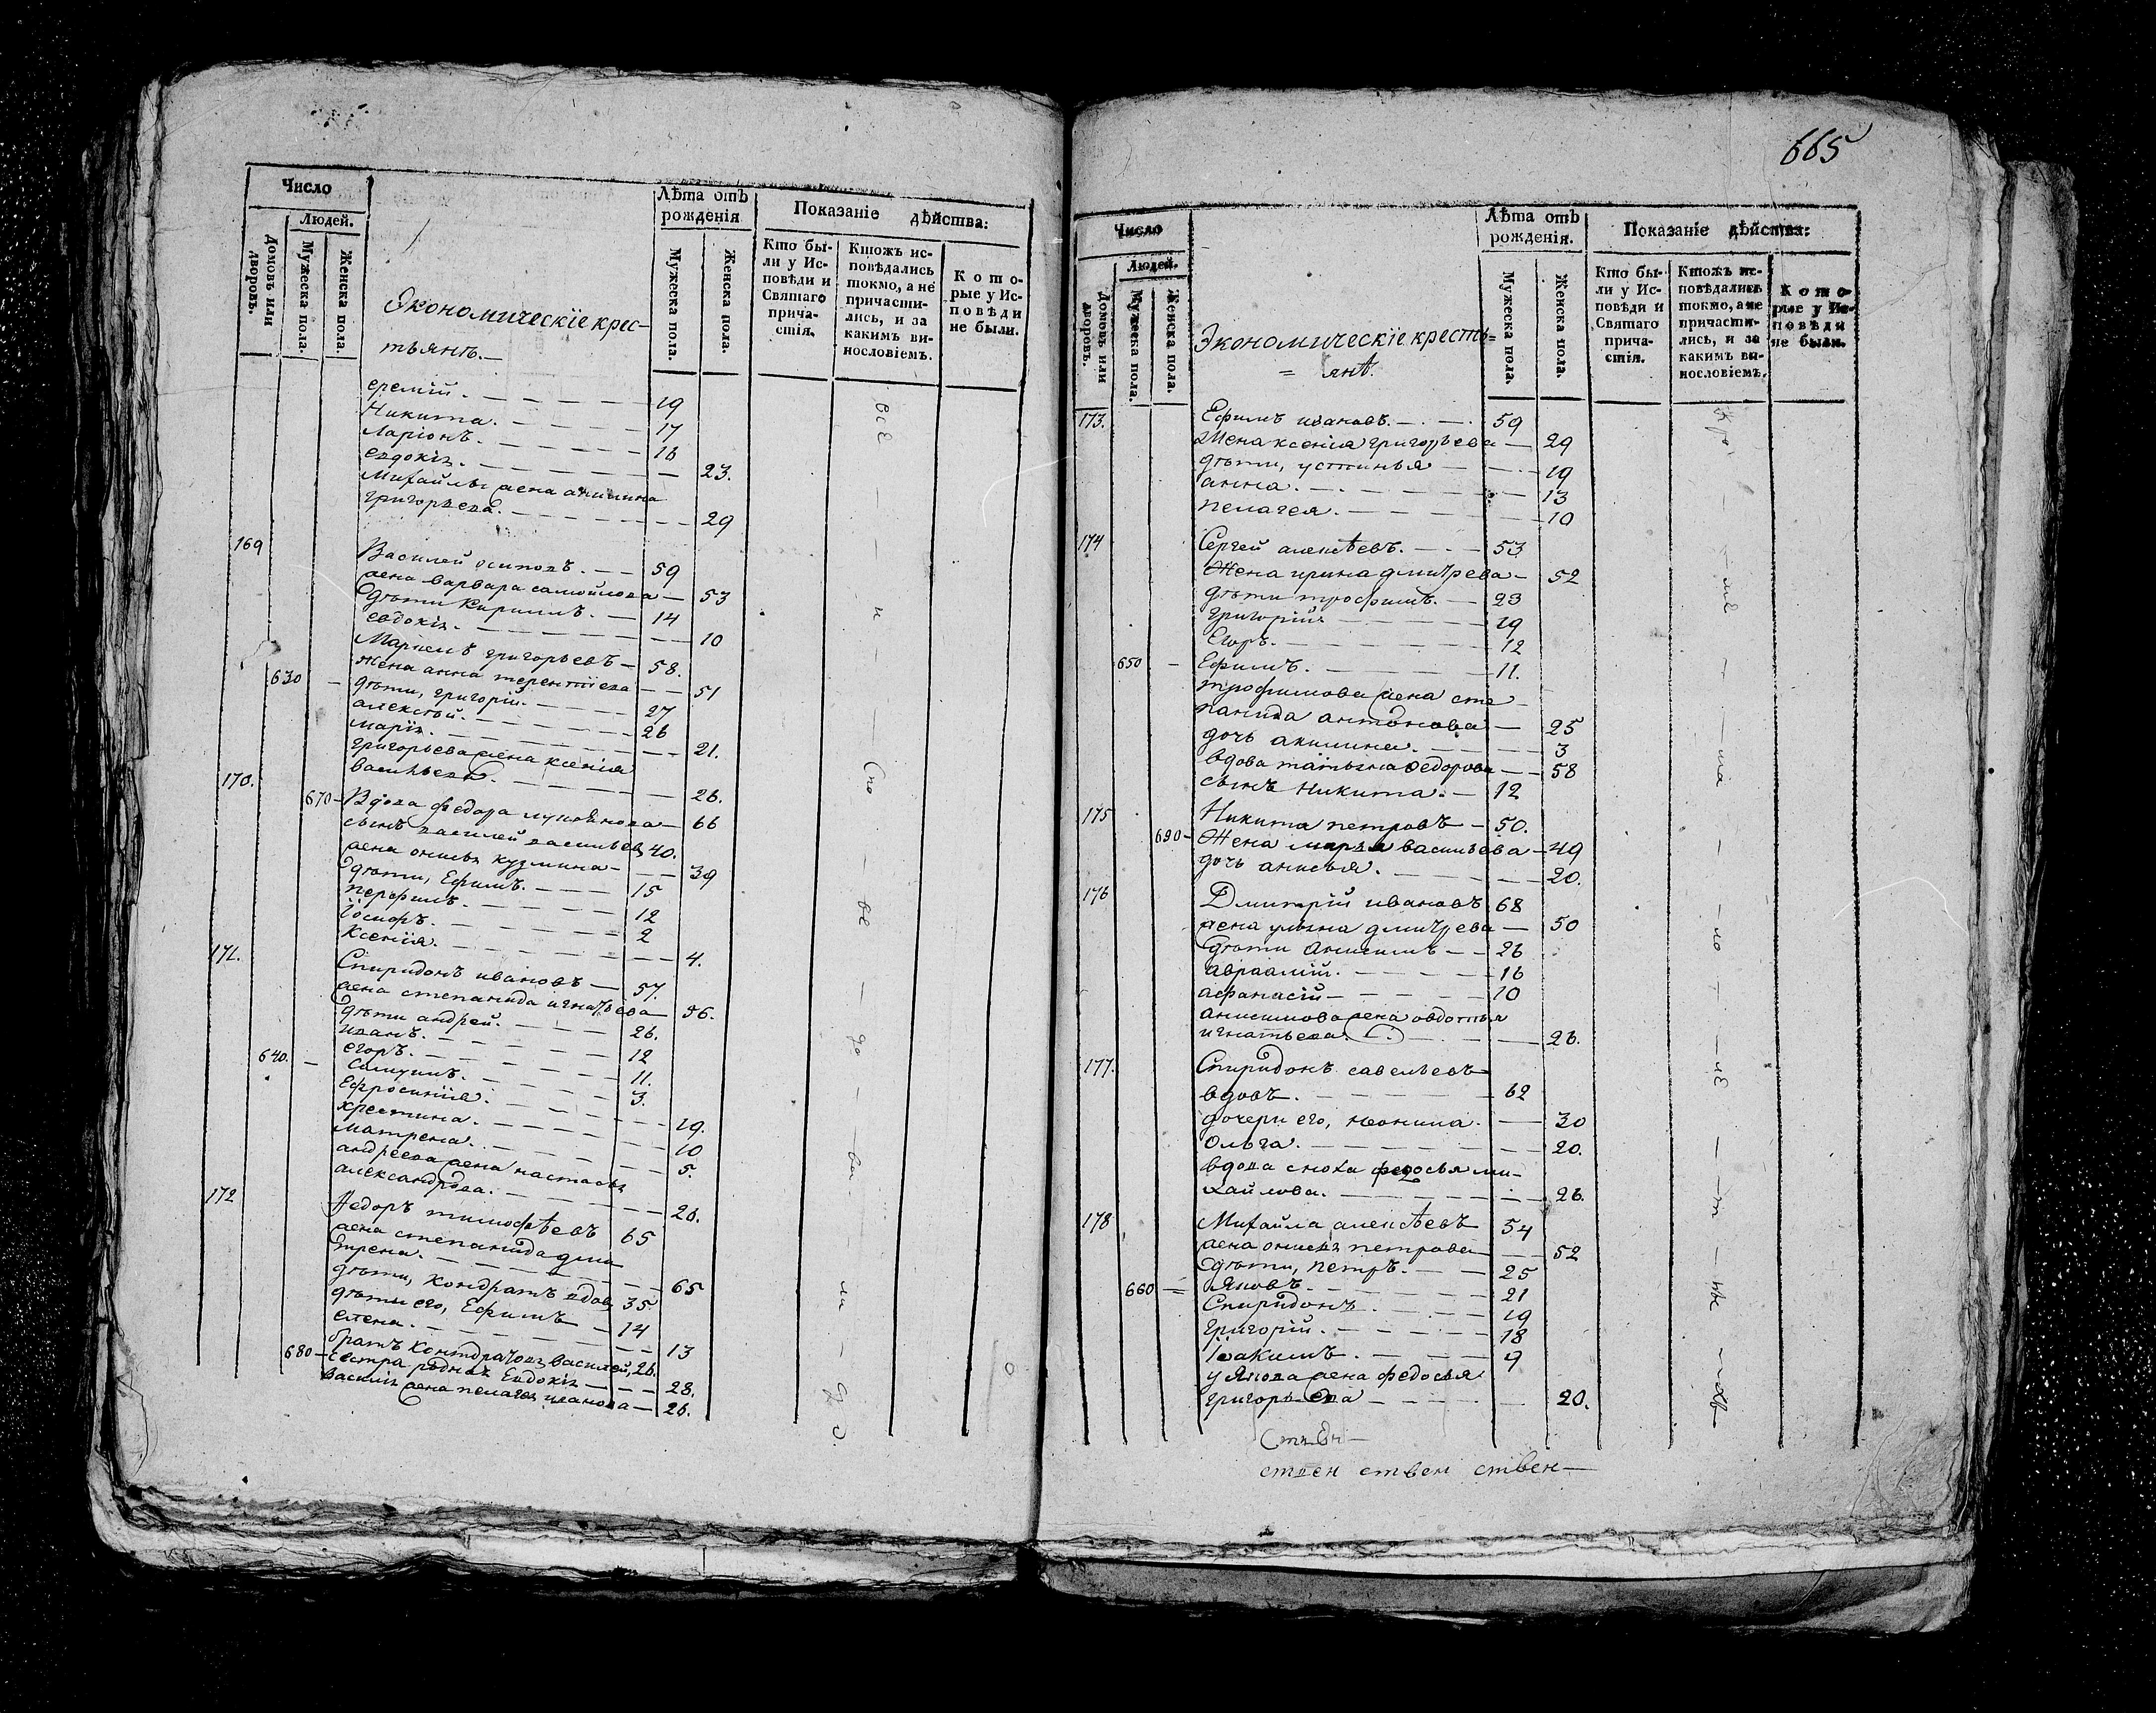 Число
Людей.
Домовъ или дворовъ.
Мужеска пола.
Женска пола.
Лѣта отъ рожденія
Мужеска пола.
Женска пола.
Показаніе дѣйства:
Кто бы-
ли у Ис-
повѣди и
Святаго
прича-
стія.
Ктожъ ис-
повѣдались
токмо, а не
причасти-
лись, и за
какимъ ви-
нословіемъ.
Кото-
рые у Ис-
повѣди
не были.
Экономическїе крес-
тьянѣ.
еремій. 19
Никита. 17
Ларіонъ. 16
евдокія. 23.
Михайлы жена акилина
григорьева. 29
169 Василей осиповъ. 59
жена варвара самойлова 53
дѣти Кирилъ. 14
евдокія. 10
григорьевъ 58.
630 Жена анна терентїева 51
дѣти, григорій. 27
алексѣй. 26
марїя. 21.
григорьева жена ксенїя
васильева. 26.
170. 670 Вдова федора лукьянова 66
сынъ василей васильевъ 40.
жена онисья кузмина 39
дѣти, Ефимъ. 15
перфилъ. 12
Іосифъ. 2
Ксенїя. 4.
171. Спиридонъ ивановъ 57.
жена степанида игнатьева 56.
дѣти андрей. 26.
иванъ. 12
егоръ. 11.
640. 3.
Ефросинїя. 19.
христина. 10
матрена. 5.
андреева жена настасья
александрова. 20.
172 Федоръ тимофѣевъ 65
жена степанида дми
трева. 65
дѣти, Кондратъ вдовъ 35.
дѣти его, Ефимъ 14
елена. 13
братъ Кондратовъ василей, 26.
680 сестра родная Евдокія 28.
Василья жена пелагея иванова 26.
665
Число
Людей.
Домовъ или дворовъ.
Мужеска пола.
Женска пола.
Лѣта отъ рожденія.
Мужеска пола.
Женска пола.
Показаніе дѣйства:
Кто бы-
ли у Ис-
повѣди и
Святаго
прича-
стія.
Ктожъ ис-
повѣдались
токмо, а не
причасти-
лись, и за
какимъ ви-
нословіемъ.
Кото-
рые у Ис-
повѣди
не были.
Экономическїе кресть=
= янѣ.
173. Ефимъ ивановъ. 59
Жена ксенія григорьева 29
дѣти, устинья 19
анна. 13
пелагея. 10
174 Сергей алексѣевъ. 53
Жена ирина дмитрева 52
дѣти трофимъ. 23
григорій 19
Егоръ. 12
650 Ефимъ. 11.
трофимова жена сте
панида антонова 25
дочь акилина. 3
вдова татьяна федорова 58
сынъ Никита. 12
175 Никита петровъ 50.
690 Жена марья васильева 49
дочь анисья. 20.
176 Дмитрій ивановъ 68
жена ульяна дмитрева 50
дѣти Анисимъ 26
авраамій. 16
афанасій 10
анисимова жена овдотья
игнатьева. 26.
177. Спиридонъ савельевъ
вдовъ. 62
дочери его, неонила. 30
Ольга. 20.
вдова сноха федосья ми-
хайлова. 26.
178 Михайла алексѣевъ 54
жена онисья петрова 52
дѣти, петръ. 25
660 Яковъ. 21
Спиридонъ. 19
Григорій. 18
Іоакимъ. 9
у Якова жена федосья
григорьева 20.
ствен ствен ствен